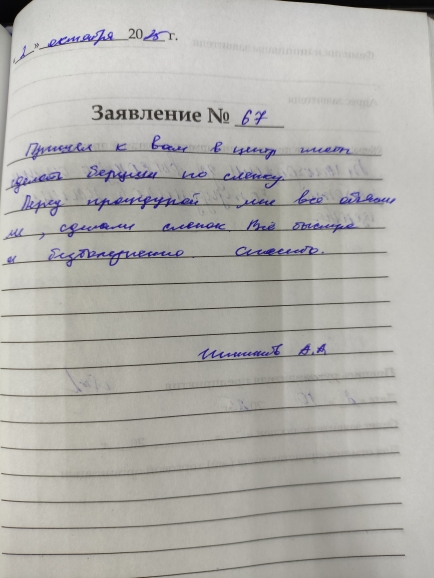 «2» октября 2025 г.
Заявление № 67
Пришел к вам в центр
сделать беруши по слепку.
Перед процедурой мне всё объясни
ли, сделали слепок. Всё быстро
и безболезненно. Спасибо.
А.А